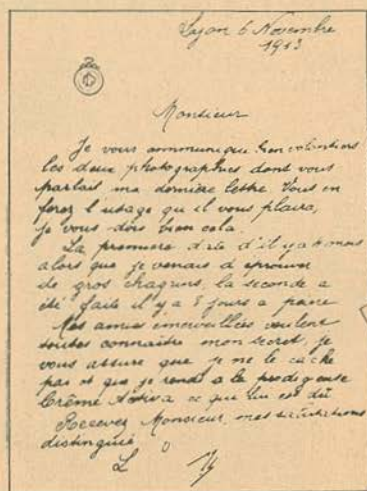 Lyon 6 Novembre
1913
Monsieur
Je vous communique bien volontiers
les deux photographies dont vous
parlait ma dernière lettre Vous en
ferez l'usage qu'il vous plaira,
je vous dois bien cela.
La première date d'il y a 6 mois
alors que je venais d'éprouver
de gros chagrins, la seconde a
été faite il y a 8 jours a peine
Mes amies émerveillées veulent
toutes connaitre mon secret, je
vous assure que je ne le cache
pas et que je rends a la prodigieuse
Crème Activa ce qui lui est dû
Recevez Monsieur, mes salutations
distingués
L